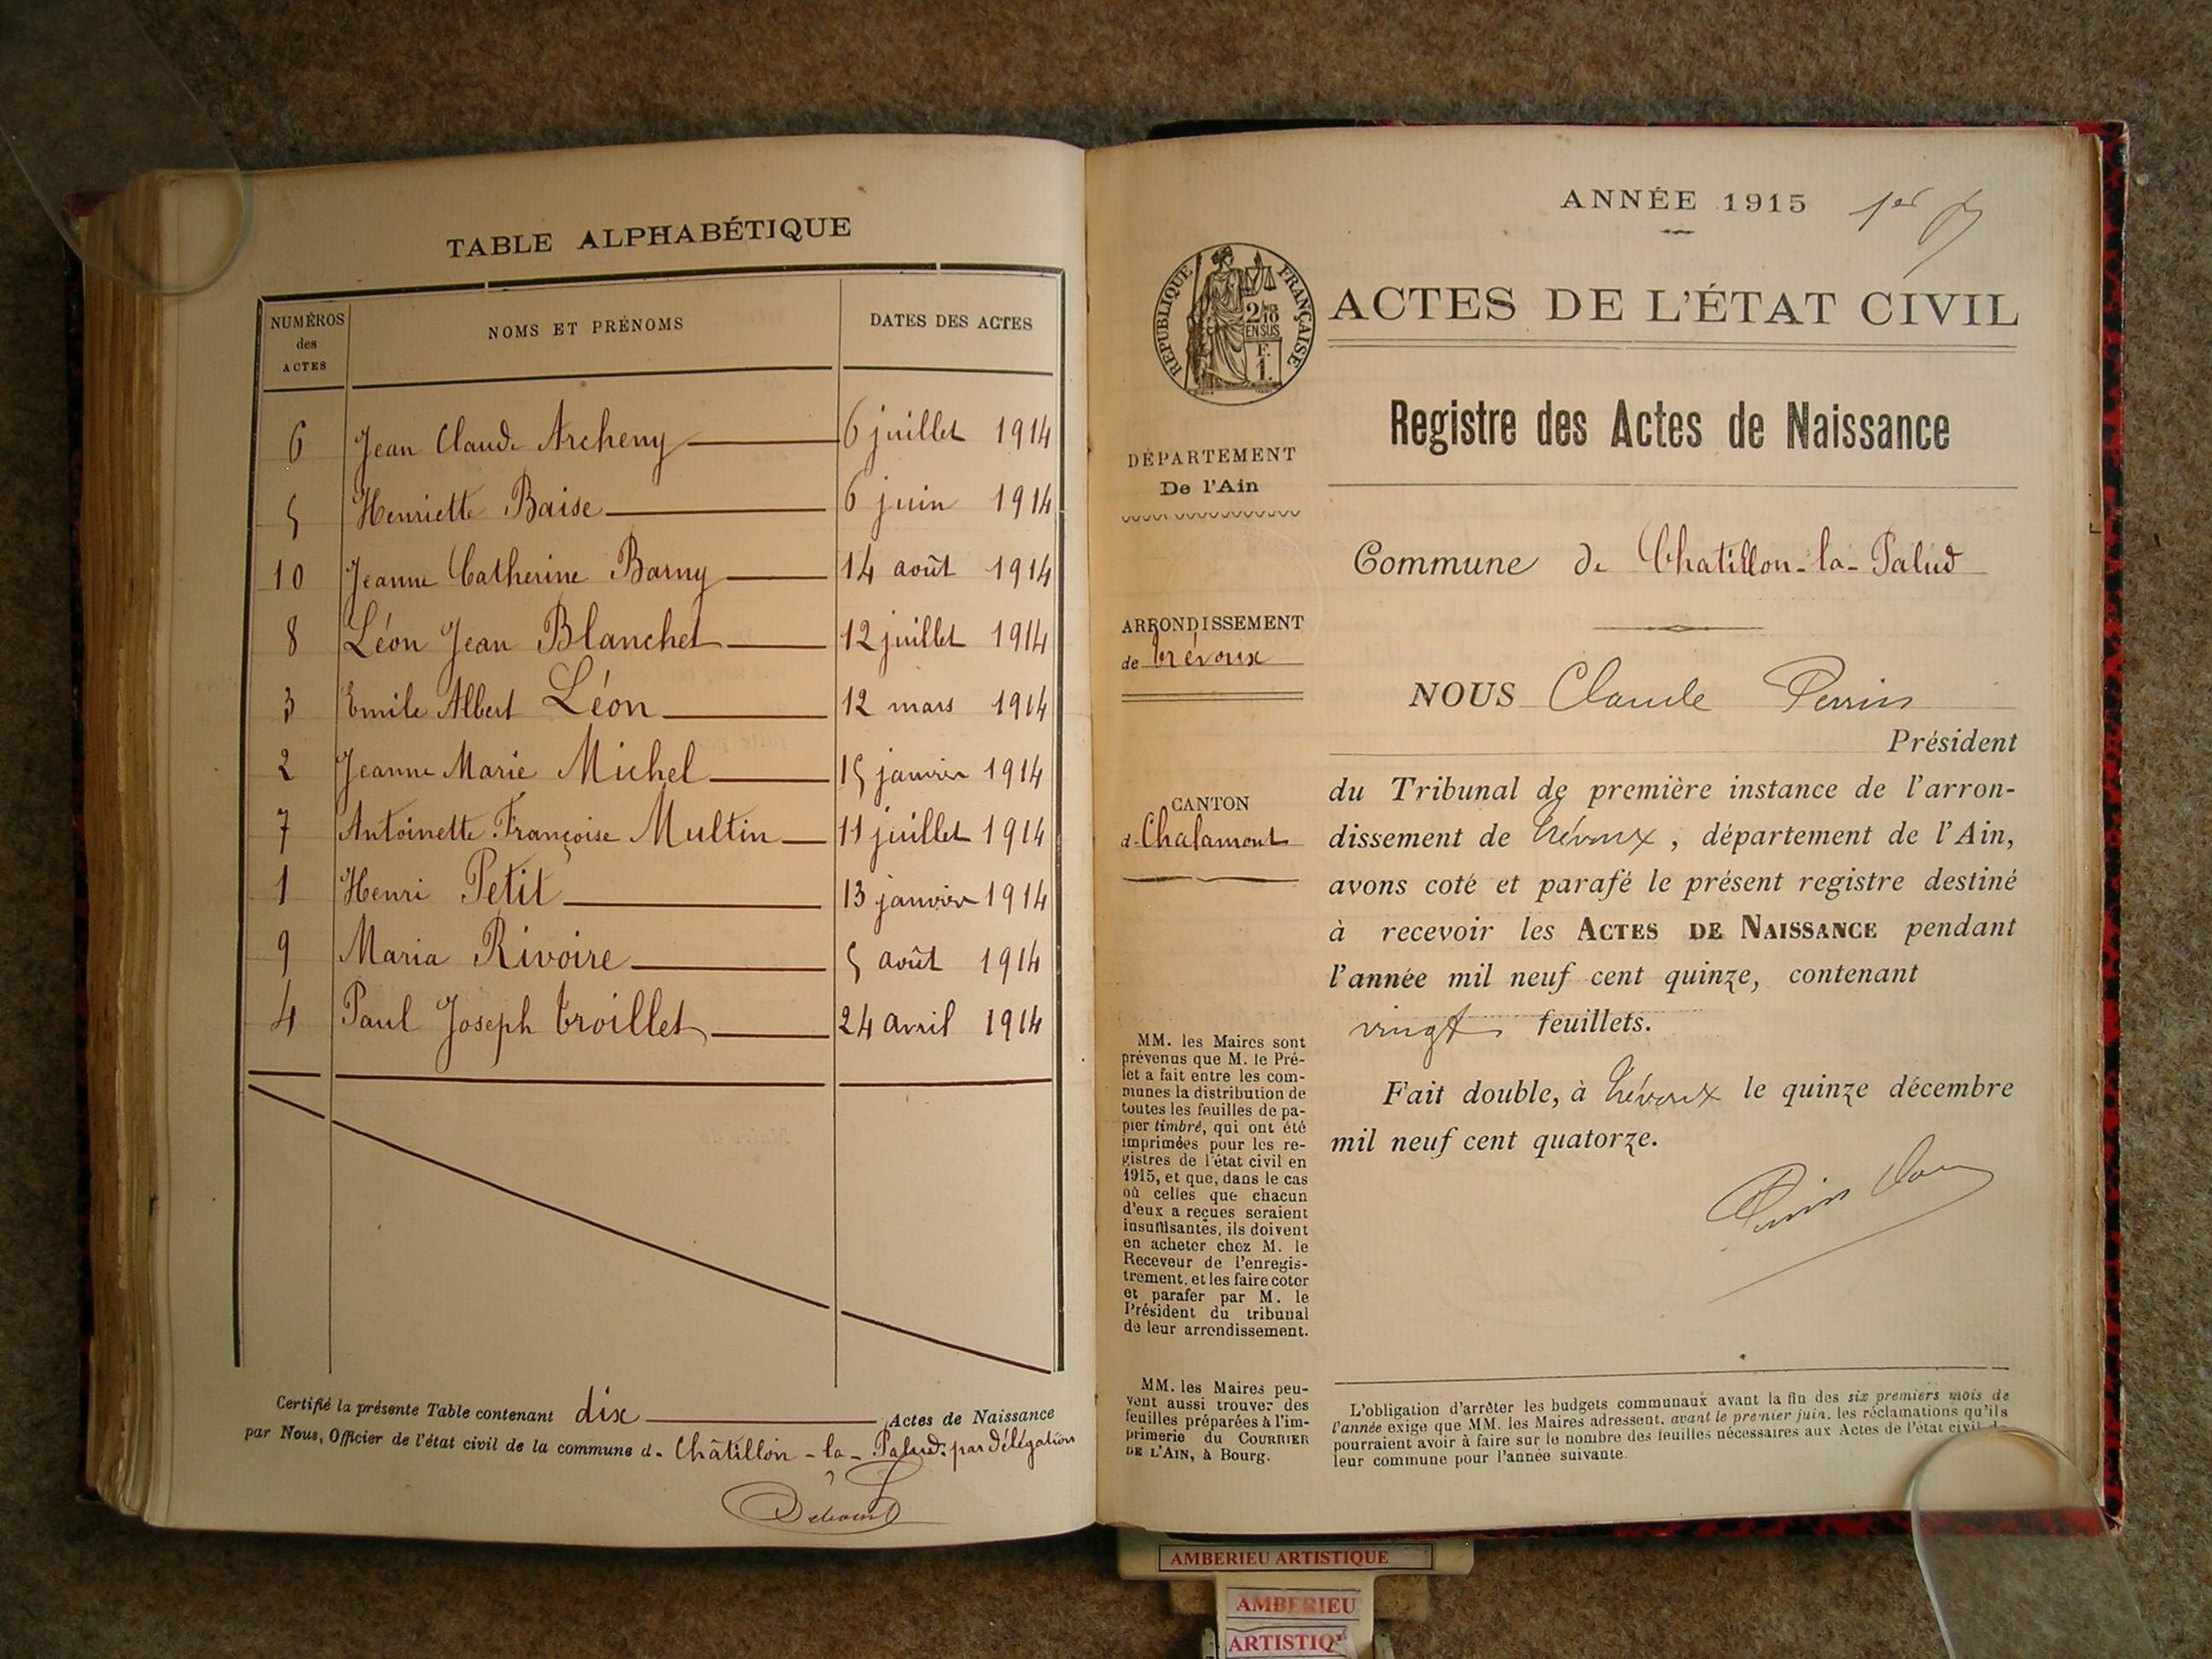 TABLE ALPHABÉTIQUE
NUMÉROS des ACTES NOMS ET PRÉNOMS DATES DES ACTES
6 Jean Claude Archeny 6 juillet 1914
5 Henriette Baise 6 juin 1914
10 Jeanne Catherine Barny 14 août 1914
8 Léon Jean Blanchet 12 juillet 1914
3 Emile Albert Léon 12 mars 1914
2 Jeanne Marie Michel 15 janvier 1914
7 Antoinette Françoise Multin 11 juillet 1914
1 Henri Petit 13 janvier 1914
9 Maria Rivoire 5 août 1914
4 Paul Joseph Troillet 24 avril 1914
Certifié la présente Table contenant dix Actes de Naissance
par Nous, Officier de l'état civil de la commune de Châtillon-la-Palud: par délégation
ANNÉE 1915 1er
RÉPUBLIQUE FRANÇAISE
2/10
EN SUS
F.
1.
ACTES DE L'ÉTAT CIVIL
Registre des Actes de Naissance
DÉPARTEMENT
De l'Ain
ARRONDISSEMENT
de Trévoux
CANTON
de Chalamont
MM. les Maires sont
prévenus que M. le Pré-
fet a fait entre les com-
munes la distribution de
toutes les feuilles de pa-
pier timbré, qui ont été
imprimées pour les re-
gistres de l'état civil en
1915, et que, dans le cas
où celles que chacun
d'eux a reçues seraient
insuffisantes, ils doivent
en acheter chez M. le
Receveur de l'enregis-
trement, et les faire coter
et parafer par M. le
Président du tribunal
de leur arrondissement.
MM. les Maires peu-
vent aussi trouver des
feuilles préparées à l'im-
primerie du COURRIER
DE L'AIN, à Bourg.
Commune de Chatillon-la-Palud
NOUS Claude Perrin
Président
du Tribunal de première instance de l'arron-
dissement de Trévoux, département de l'Ain,
avons coté et parafé le présent registre destiné
à recevoir les ACTES DE NAISSANCE pendant
l'année mil neuf cent quinze, contenant
vingt feuillets.
Fait double, à Trévoux le quinze décembre
mil neuf cent quatorze.
L'obligation d'arrêter les budgets communaux avant la fin des six premiers mois de
l'année exige que MM. les Maires adressent, avant le premier juin, les réclamations qu'ils
pourraient avoir à faire sur le nombre des feuilles nécessaires aux Actes de l'état civil de
leur commune pour l'année suivante.
AMBERIEU ARTISTIQUE
AMBERIEU
ARTISTIQ